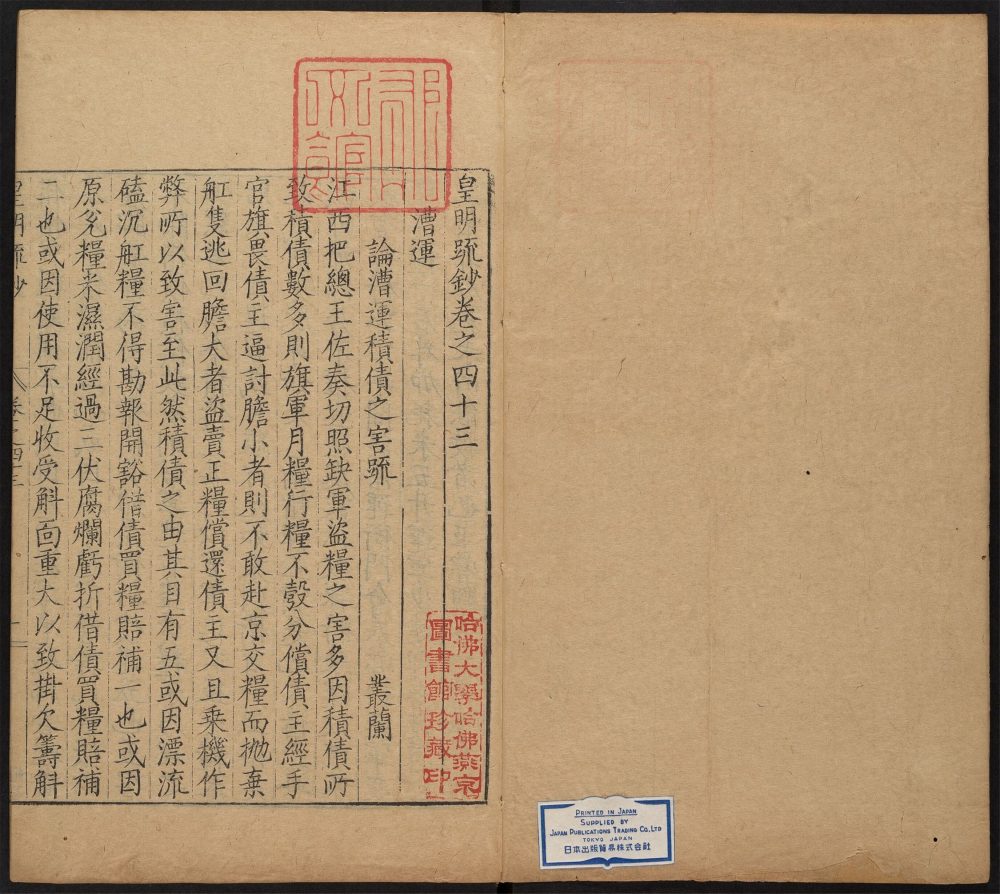 皇明疏鈔卷之四十三
漕運
論漕運積債之害疏 叢蘭
江西把總王佐奏切照缺軍盜糧之害多因積債所
致積債數多則旗軍月糧行糧不彀分償債主經手
官旗畏債主逼討膽小者則不敢赴京交糧而抛棄
舡隻逃回膽大者盜賣正糧償還債主又且乘機作
弊所以致害至此然積債之由其目有五或因漂流
磕沉舡糧不得勘報開豁借債買糧賠補一也或因
原兊糧米濕潤經過三伏腐爛虧折借債買糧賠補
二也或因使用不足收受斛面重大以致掛欠籌斛
皇明疏鈔
卷之四十三
一
哈佛大學哈佛燕京
圖書館珍藏印
PRINTED IN JAPAN
SUPPLIED BY
JAPAN PUBLICATIONS TRADING CO., LTD
TOKYO JAPAN
日本出版貿易株式会社